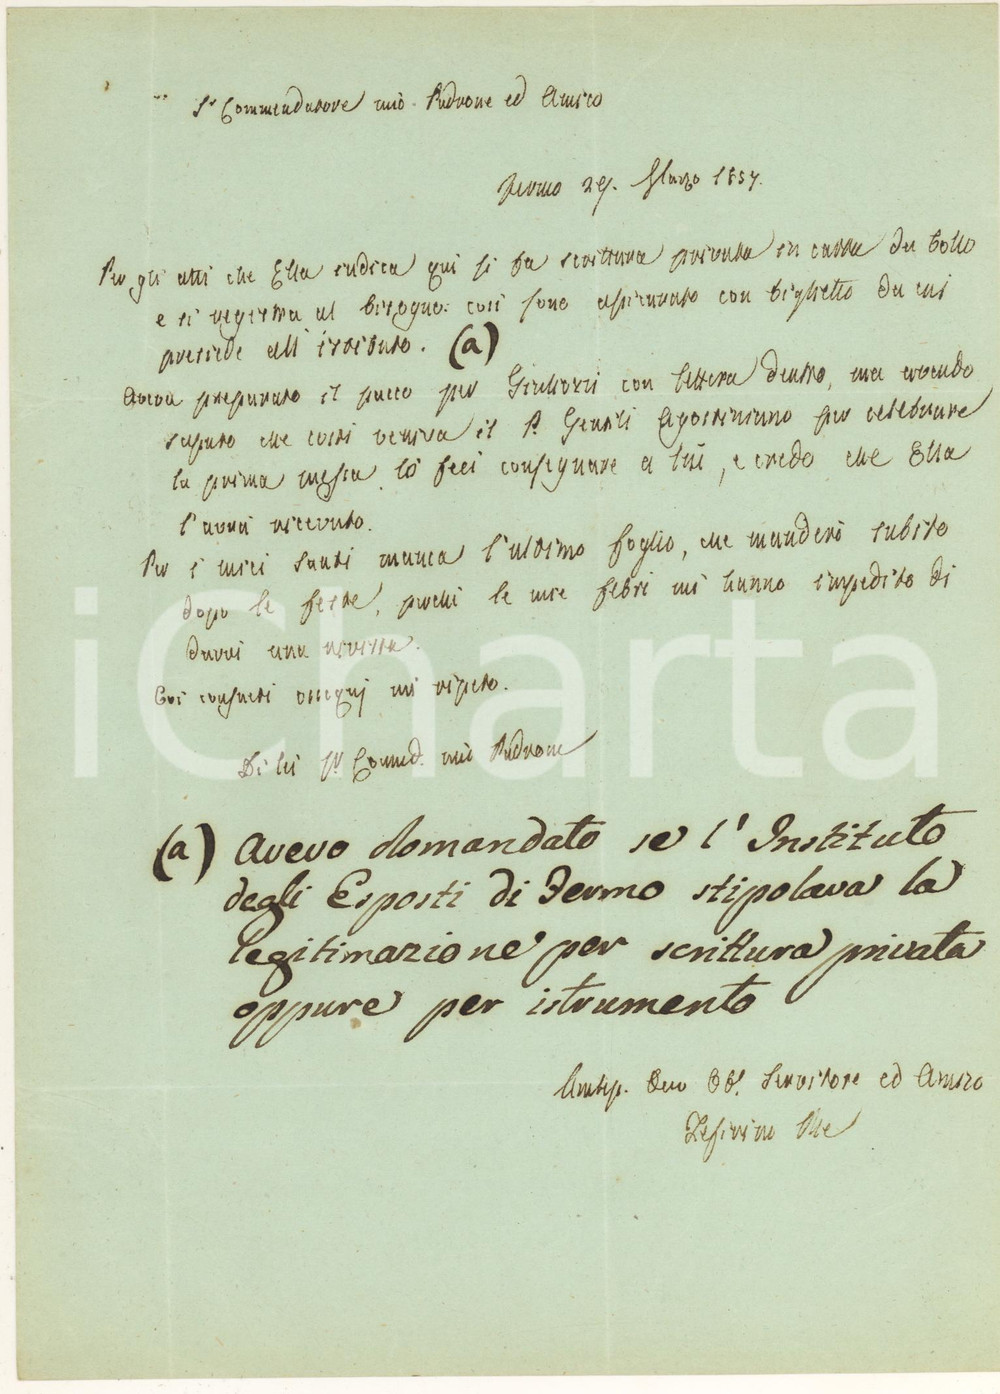 Sr Commendatore mio Padrone ed Amico
Fermo 29. Marzo 1857.
Per gli atti che Ella indica qui si fa scrittura privata in carta da bollo
e si registra al bisogno: così sono assicurato con biglietto da cui
presiede all'istituto. (a)
Aveva preparato il pacco per Giuliozzi con lettera dentro, ma avendo
saputo che costì veniva il P. Gentili Agostiniano per celebrare
la prima messa, lo feci consegnare a lui, e credo che Ella
l'avrà ricevuto.
Per i miei Santi manca l'ultimo foglio, che manderò subito
dopo le feste, perchè le mie febri mi hanno impedito di
darvi una rivista.
Coi consueti ossequj mi ripeto.
Di lei Sr Commend. mio Padrone
(a) Avevo domandato se l'Instituto
degli Esposti di Fermo stipolava la
legitimazione per scrittura privata
oppure per istrumento
Servitore ed Amico
iCharta